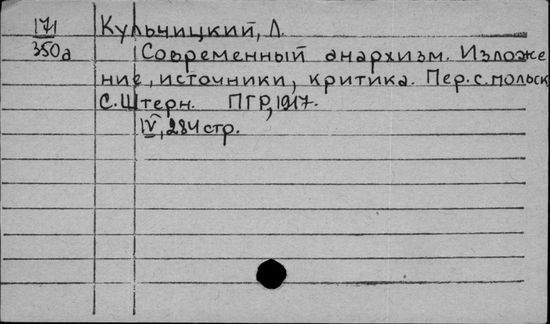 171 Кульчицкий, Л.
350а Современный анархизм. Изложе
ние, источники, критика. Пер. с польск
С. Штерн. ПГР, 1917.
IV, 284 стр.